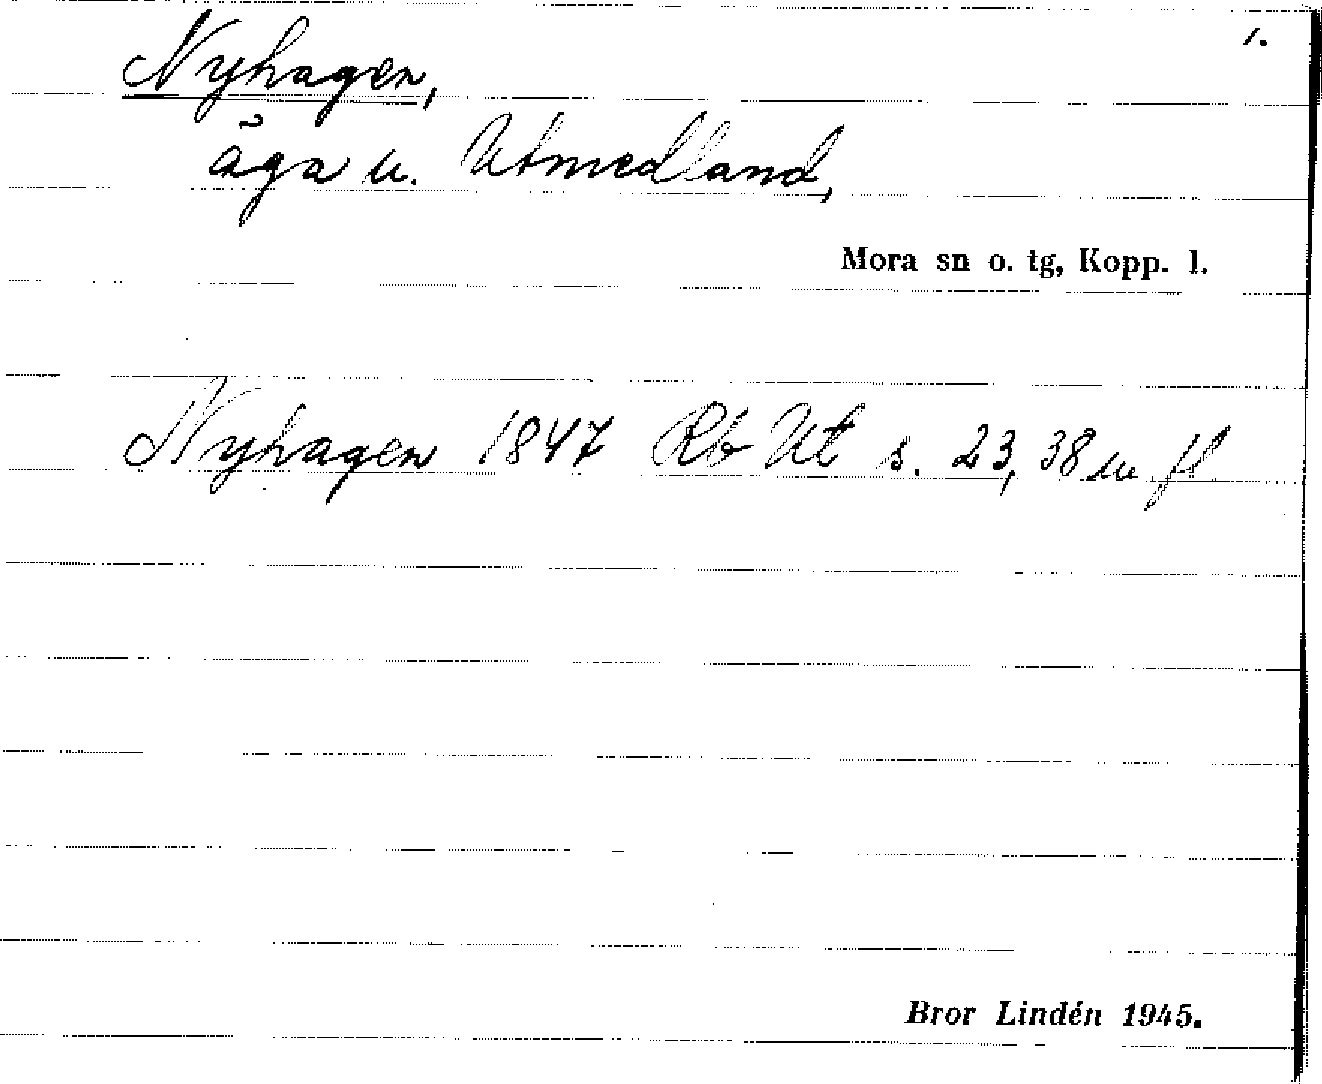 1.
Nyhagen,
äga u. Utmedland,
Mora sn o. tg, Kopp. l.
Nyhagen 1847 Rb Ut s. 23, 38 m fl
Bror Lindén 1945.